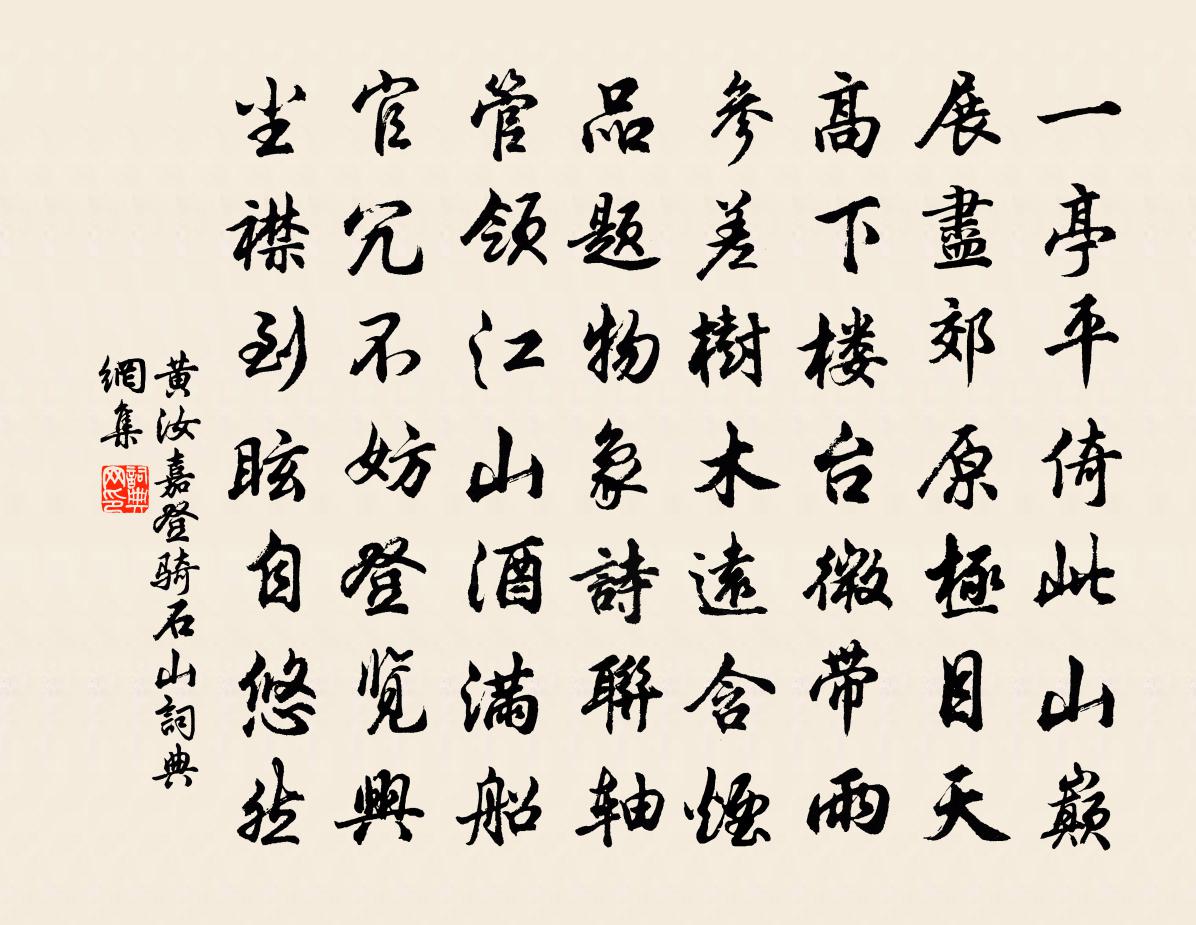 一亭平倚此山巔
展盡郊原極目天
高下楼台微带雨
參差樹木遠含煙
品题物象詩聯轴
管领江山酒满船
官冗不妨登览興
尘襟到眩自悠然
黄汝嘉登骑石山詞典
網集
詞典
网印